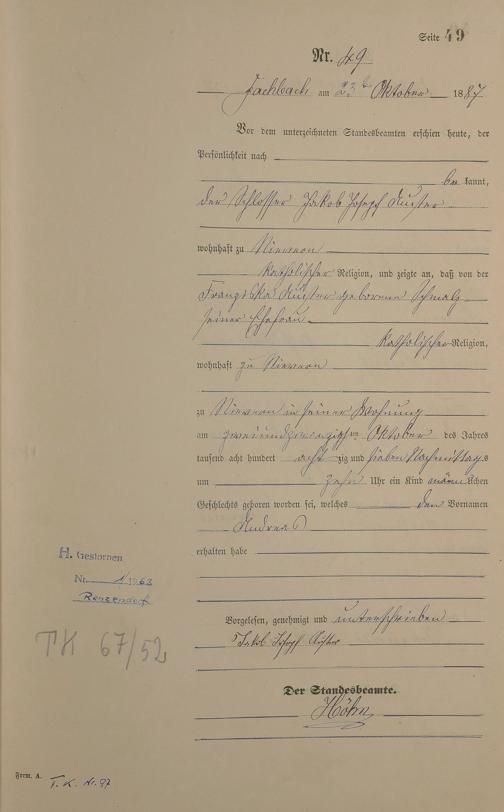 Seite 49
Nr. 49
Fachbach am 23t Oktober 1887
Vor dem unterzeichneten Standesbeamten erschien heute, der
Persönlichkeit nach
be kannt,
der Schlosser Jakob Joseph
wohnhaft zu Nievern
katholischer Religion, und zeigte an, daß von der
Franziska geborenen Schmalz
seiner Ehefrau
katholischer Religion,
wohnhaft zu Nievern
zu Nievern in seiner Wohnung
am zweiundzwanzigsten Oktober des Jahres
tausend acht hundert acht zig und sieben Nachmittags
um zehn Uhr ein Kind männlichen
Geschlechts geboren worden sei, welches den Vornamen
Andreas
erhalten habe
H. Gestorben
Nr. 1/1963
Vorgelesen, genehmigt und unterschrieben
Jakob Joseph
TK 67/52
Der Standesbeamte.
Höhn
Form. A.
T. K. Nr. 97